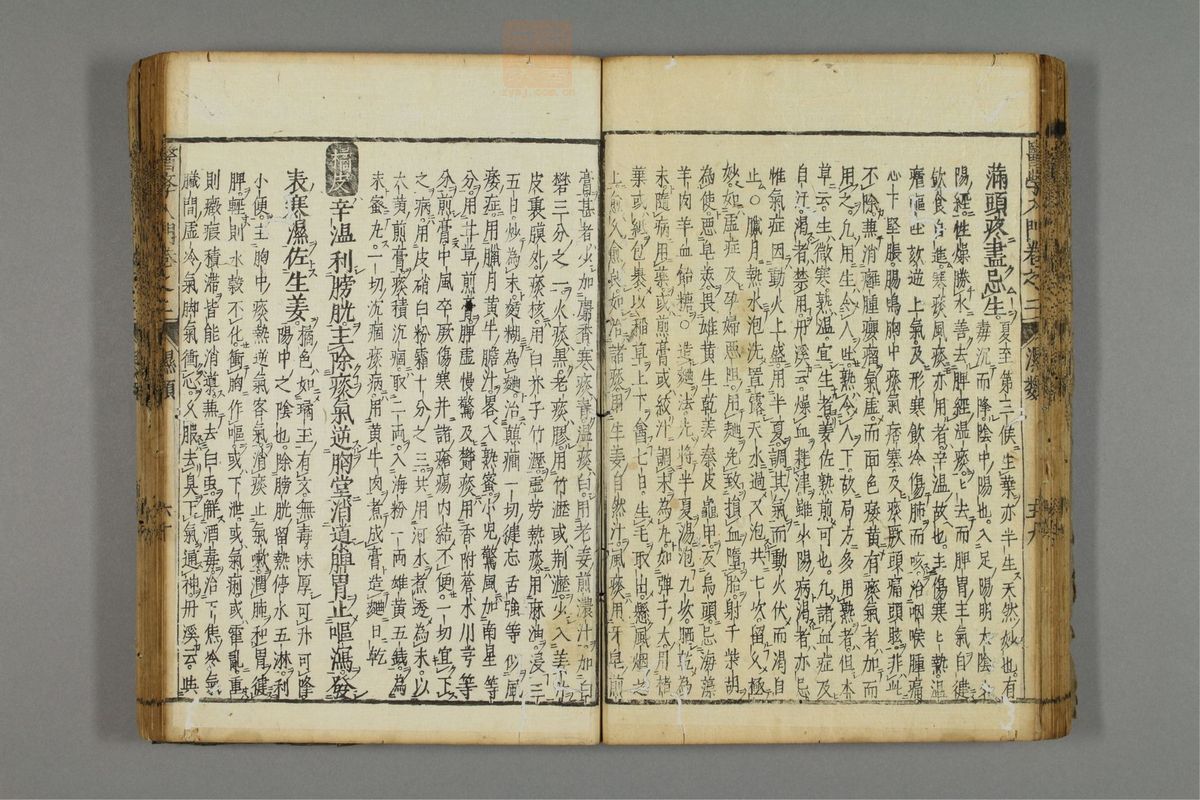 醫學入門卷之二 濕類 五十九
滿頭疼盡忌生 夏至第三候生葉亦半生天然妙也有
毒沉而降陰中陽也入足陽明太陰少
陽經性燥勝水善去脾經濕痰〻去而脾胃主氣自徤
飲食自進寒痰風痰亦用者辛温故也主傷寒〻熱温
瘧嘔吐欬逆上氣及形寒飲冷傷肺而咳治咽喉腫痛
心下堅脹腸鳴胸中痰氣痞塞及痰厥頭痛頭眩非此
不除兼消癰腫癭瘤氣虛而面色痿黃有痰氣者加而
用之凡用生令人吐熟令人下故局方多用熟者但本
草云生微寒熟温宜生者姜佐熟煎可也凡諸血症及
自汗渴者禁用丹溪云燥血耗津雖少陽病渴者亦忌
惟氣症因動火上盛用半夏調其氣而動火伏而渴自
止○臘月熱水泡洗置露天水過又泡共七次留久極
妙如虛症及孕婦惡阻用麯免致損血墮胎射干柴胡
為使惡皂莢畏雄黃生乾姜秦皮龜甲反烏頭忌海藻
羊肉羊血飴糖○造麯法先將半夏湯泡九次晒乾為
末隨病用藥或煎膏或絞汁調末為丸如彈子大用楮
葉或紙包裹以稻草上下盦七日生毛取出懸風烟之
上愈久愈良如治諸痰用生姜自然汁風痰用牙皂煎
膏甚者少加麝香寒痰青濕痰白用老姜煎濃汁加白
礬三分之一火痰黑老痰膠用竹瀝或荆瀝少入姜汁
皮裏膜外痰核用白芥子竹瀝虛勞熱痰用麻油浸三
五日炒為末麯糊為麯治癲癎一切徤忘舌強等似風
痿症用臘月黃牛膽汁畧入熟蜜小兒驚風加南星等
分用甘草煎膏脾虛慢驚及欝痰用香附蒼朮川芎等
分煎膏中風卒厥傷寒并諸瘡瘍内結不便一切宜下
之病用皮硝白粉霜十分之三共用河水煮透為末以
大黃煎膏痰積沉痼取二両入海粉一両雄黃五錢為
末蜜丸一切沉痼痰病用黃牛肉煮成膏造麯日乾
橘皮 辛温利膀胱主除痰氣逆胸堂消道脾胃止嘔瀉發
表寒濕佐生姜 橘色如瑀玉有文無毒味厚可升可降
陽中之陰也除膀胱留熱停水五淋利
小便主胸中痰熱逆氣客氣消痰止氣嗽潤肺和胃徤
脾輕則水穀不化衝胸作嘔或下泄或氣痢或霍亂重
則癥瘕積滯皆能消導兼去白虫觧酒毒治下焦冷氣
臟間虛冷氣脾氣衝心又服去臭下氣通神丹溪云此
醫學入門卷之二 濕類 六十